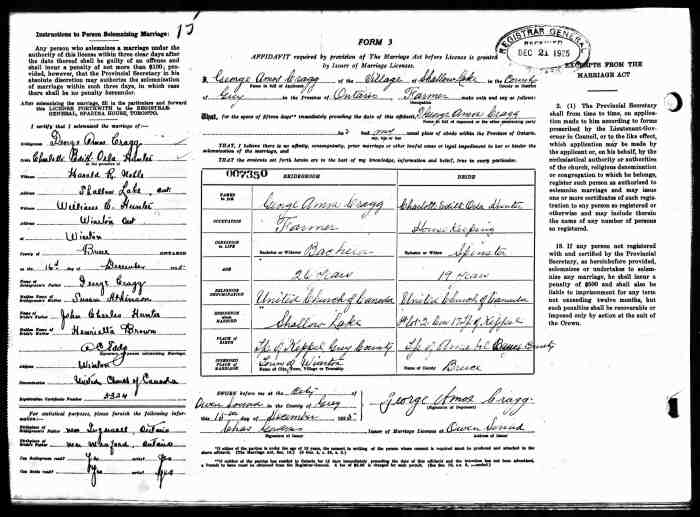 15
Instructions to Person Solemnizing Marriage:
Any person who solemnizes a marriage under the
authority of this license within three clear days after
the date thereof shall be guilty of an offence and
shall incur a penalty of not more than $100; pro-
vided, however, that the Provincial Secretary in his
absolute discretion may authorize the solemnization
of marriage within such three days, in which case
there shall be no penalty hereunder.
After solemnizing marriage, fill in the particulars and forward
this LICENSE FORTHWITH to the REGISTRAR-
GENERAL, SPADINA HOUSE, TORONTO.
I certify that I solemnized the marriage of:
Bridegroom George Amos Cragg
Charlotte Edith Orla Hunter
in the presence of
Witness Harold R. Noble
Address Shallow Lake, Ont.
Witness William C. Hunter
Address Wiarton Ont
at Wiarton
County of Bruce ONTARIO
on the 16th day of December
Name of Bridegroom's Father George Cragg
Maiden Name of Bridegroom's Mother Susan Atkinson
Name of Bride's Father John Charles Hunter
Maiden Name of Bride's Mother Henrietta Brown
A C Eddy
Signature of person solemnizing Marriage.
Address Wiarton
Denomination United Church of Canada
Registration Certificate Number 5324
For statistical purposes, please furnish the following infor-
mation—
Birthplace of Bridegroom's Father near Ingersoll, Ontario
Birthplace of Bride's Father Ontario
Can Bridegroom read? Yes
Can Bride read? Yes
FORM 3
AFFIDAVIT required by provision of The Marriage Act before License is granted
by Issuer of Marriage Licenses.
I, George Amos Cragg of the Village of Shallow Lake in the County
Name in full of Applicant
Grey in the Province of Ontario Farmer make oath and say as follows:
Occupation
That, for the space of fifteen days immediately preceding the date of this affidavit George Amos Cragg
had usual place of abode within the Province of Ontario.
THAT, I believe there is no affinity, consanguinity, prior marriage or other lawful cause or legal impediment to bar or hinder
the solemnization of the marriage, and
THAT the answers set forth herein are to the best of my knowledge, information and belief, true in every particular.
007350 BRIDEGROOM BRIDE
NAMES in full George Amos Cragg Charlotte Edith Orla Hunter
OCCUPATION Farmer House Keeping
CONDITION IN LIFE Bachelor or Widower Bachelor Spinster or Widow Spinster
AGE 26 Years 19 Years
RELIGIOUS DENOMINATION United Church of Canada United Church of Canada
RESIDENCE WHEN MARRIED Shallow Lake Keppel
PLACE OF BIRTH Tp. of Keppel Grey County Tp. of Amabel Bruce County
INTENDED PLACE OF MARRIAGE Town of Wiarton Bruce
Name of City, Town, Village or Township Name of County
SWORN before me at the City of
Owen Sound in the County of Grey
this 15th day of December
Signature of Issuer
George Amos Cragg
(Signature of Deponent)
Issuer of Marriage Licenses Owen Sound
Address of Issuer
REGISTRAR GENERAL
RECEIVED
DEC 21 1925
EXCERPTS FROM THE
MARRIAGE ACT
2. (1) The Provincial Secretary
shall from time to time, on applica-
tion made to him according to forms
prescribed by the Lieutenant-Gover-
nor in Council, or to the like effect,
which application may be made by
the applicant or, on his behalf, by the
ecclesiastical authority or authorities
of the church, religious denomination
or congregation to which he belongs,
register such person as authorized to
solemnize marriage and may issue
one or more certificates of such regis-
tration to any person so registered
or otherwise and may include therein
the name of any number of persons
so registered.
15. If any person not registered
with and certified by the Provincial
Secretary, as hereinbefore provided,
solemnizes or undertakes to solem-
nize any marriage, he shall incur a
penalty of $500 and shall also be
liable to imprisonment for any term
not exceeding twelve months, but
such penalties shall be recoverable or
imposed only by action at the suit of
the Crown.